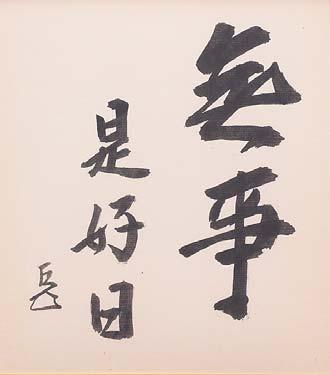 無事
是好日
岳